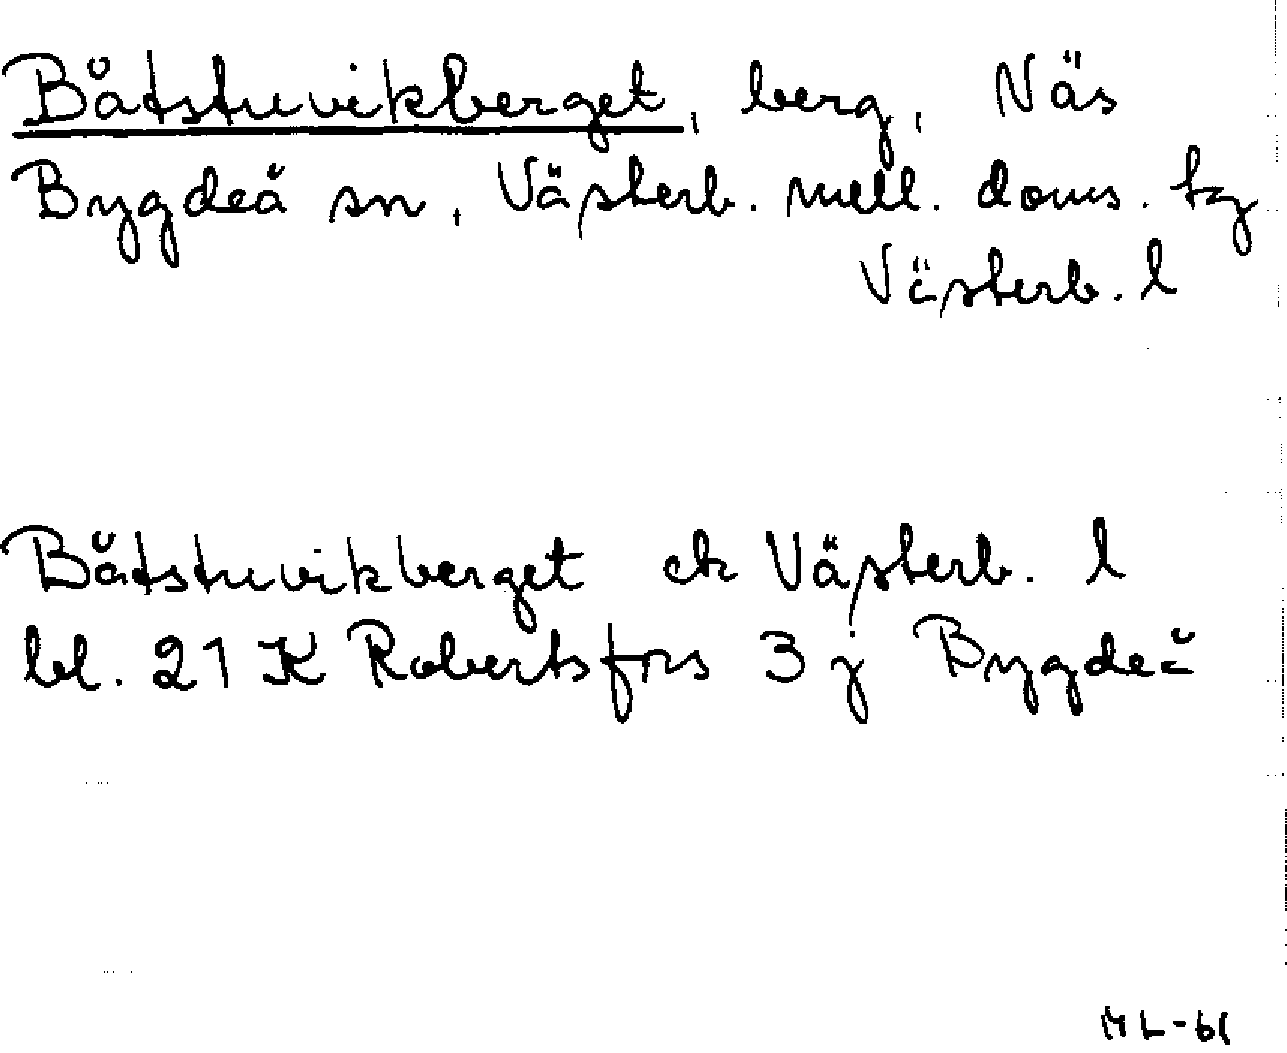 Båtstuvikberget, berg, Näs
Bygdeå sn, Västerb. mell. doms. tg
Västerb. l
Båtstuvikberget ek Västerb. l
bl. 21 K Robertsfors 3 j Bygdeå
ML-61